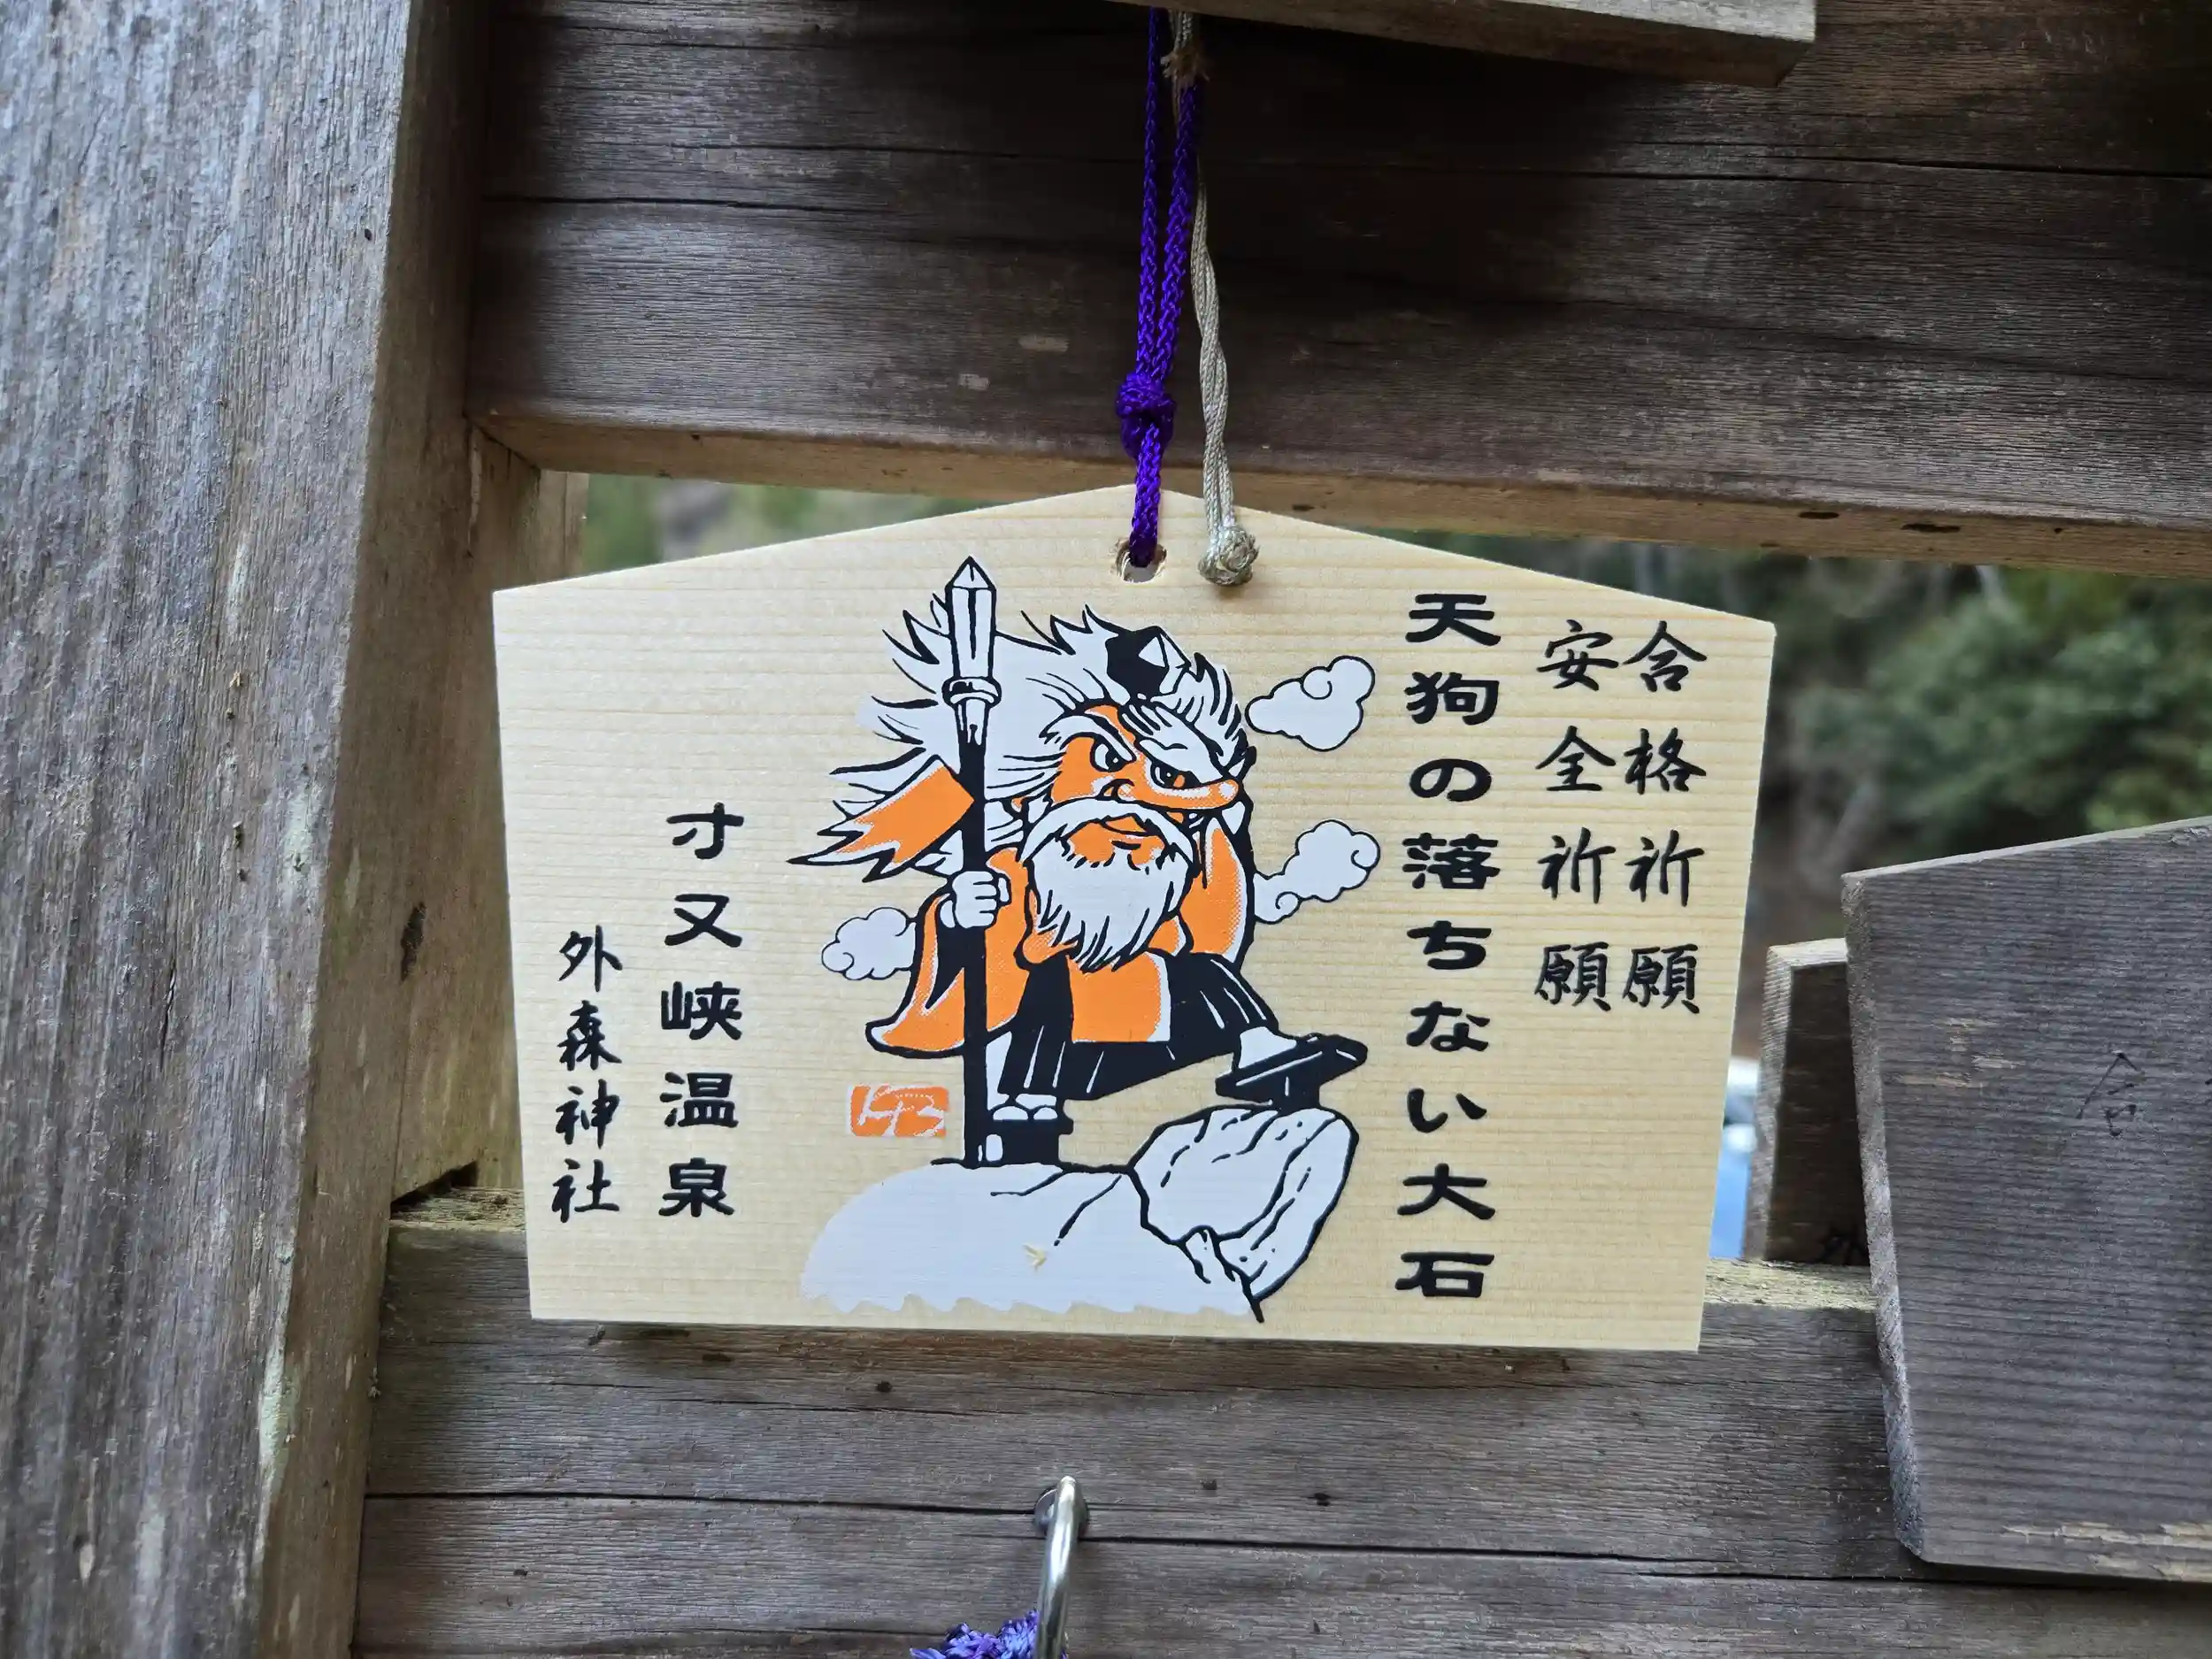 合格祈願
安全祈願
天狗の落ちない大石
寸又峡温泉
外森神社